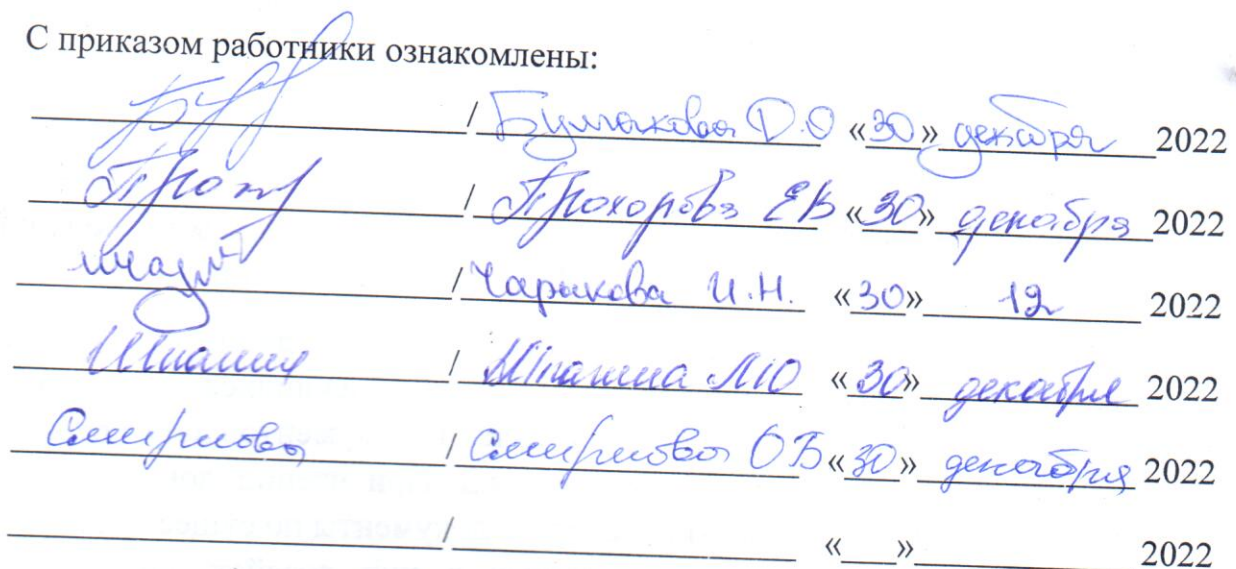 С приказом работники ознакомлены:
/ Булгакова Д.О «30» декабря 2022
/ Прохорова ЕВ «30» декабря 2022
/ Чарыкова И.Н. «30» 12 2022
Шпанина / Шпанина МЮ «30» декабря 2022
Смирнова / Смирнова ОБ «30» декабря 2022
/ «   » 2022